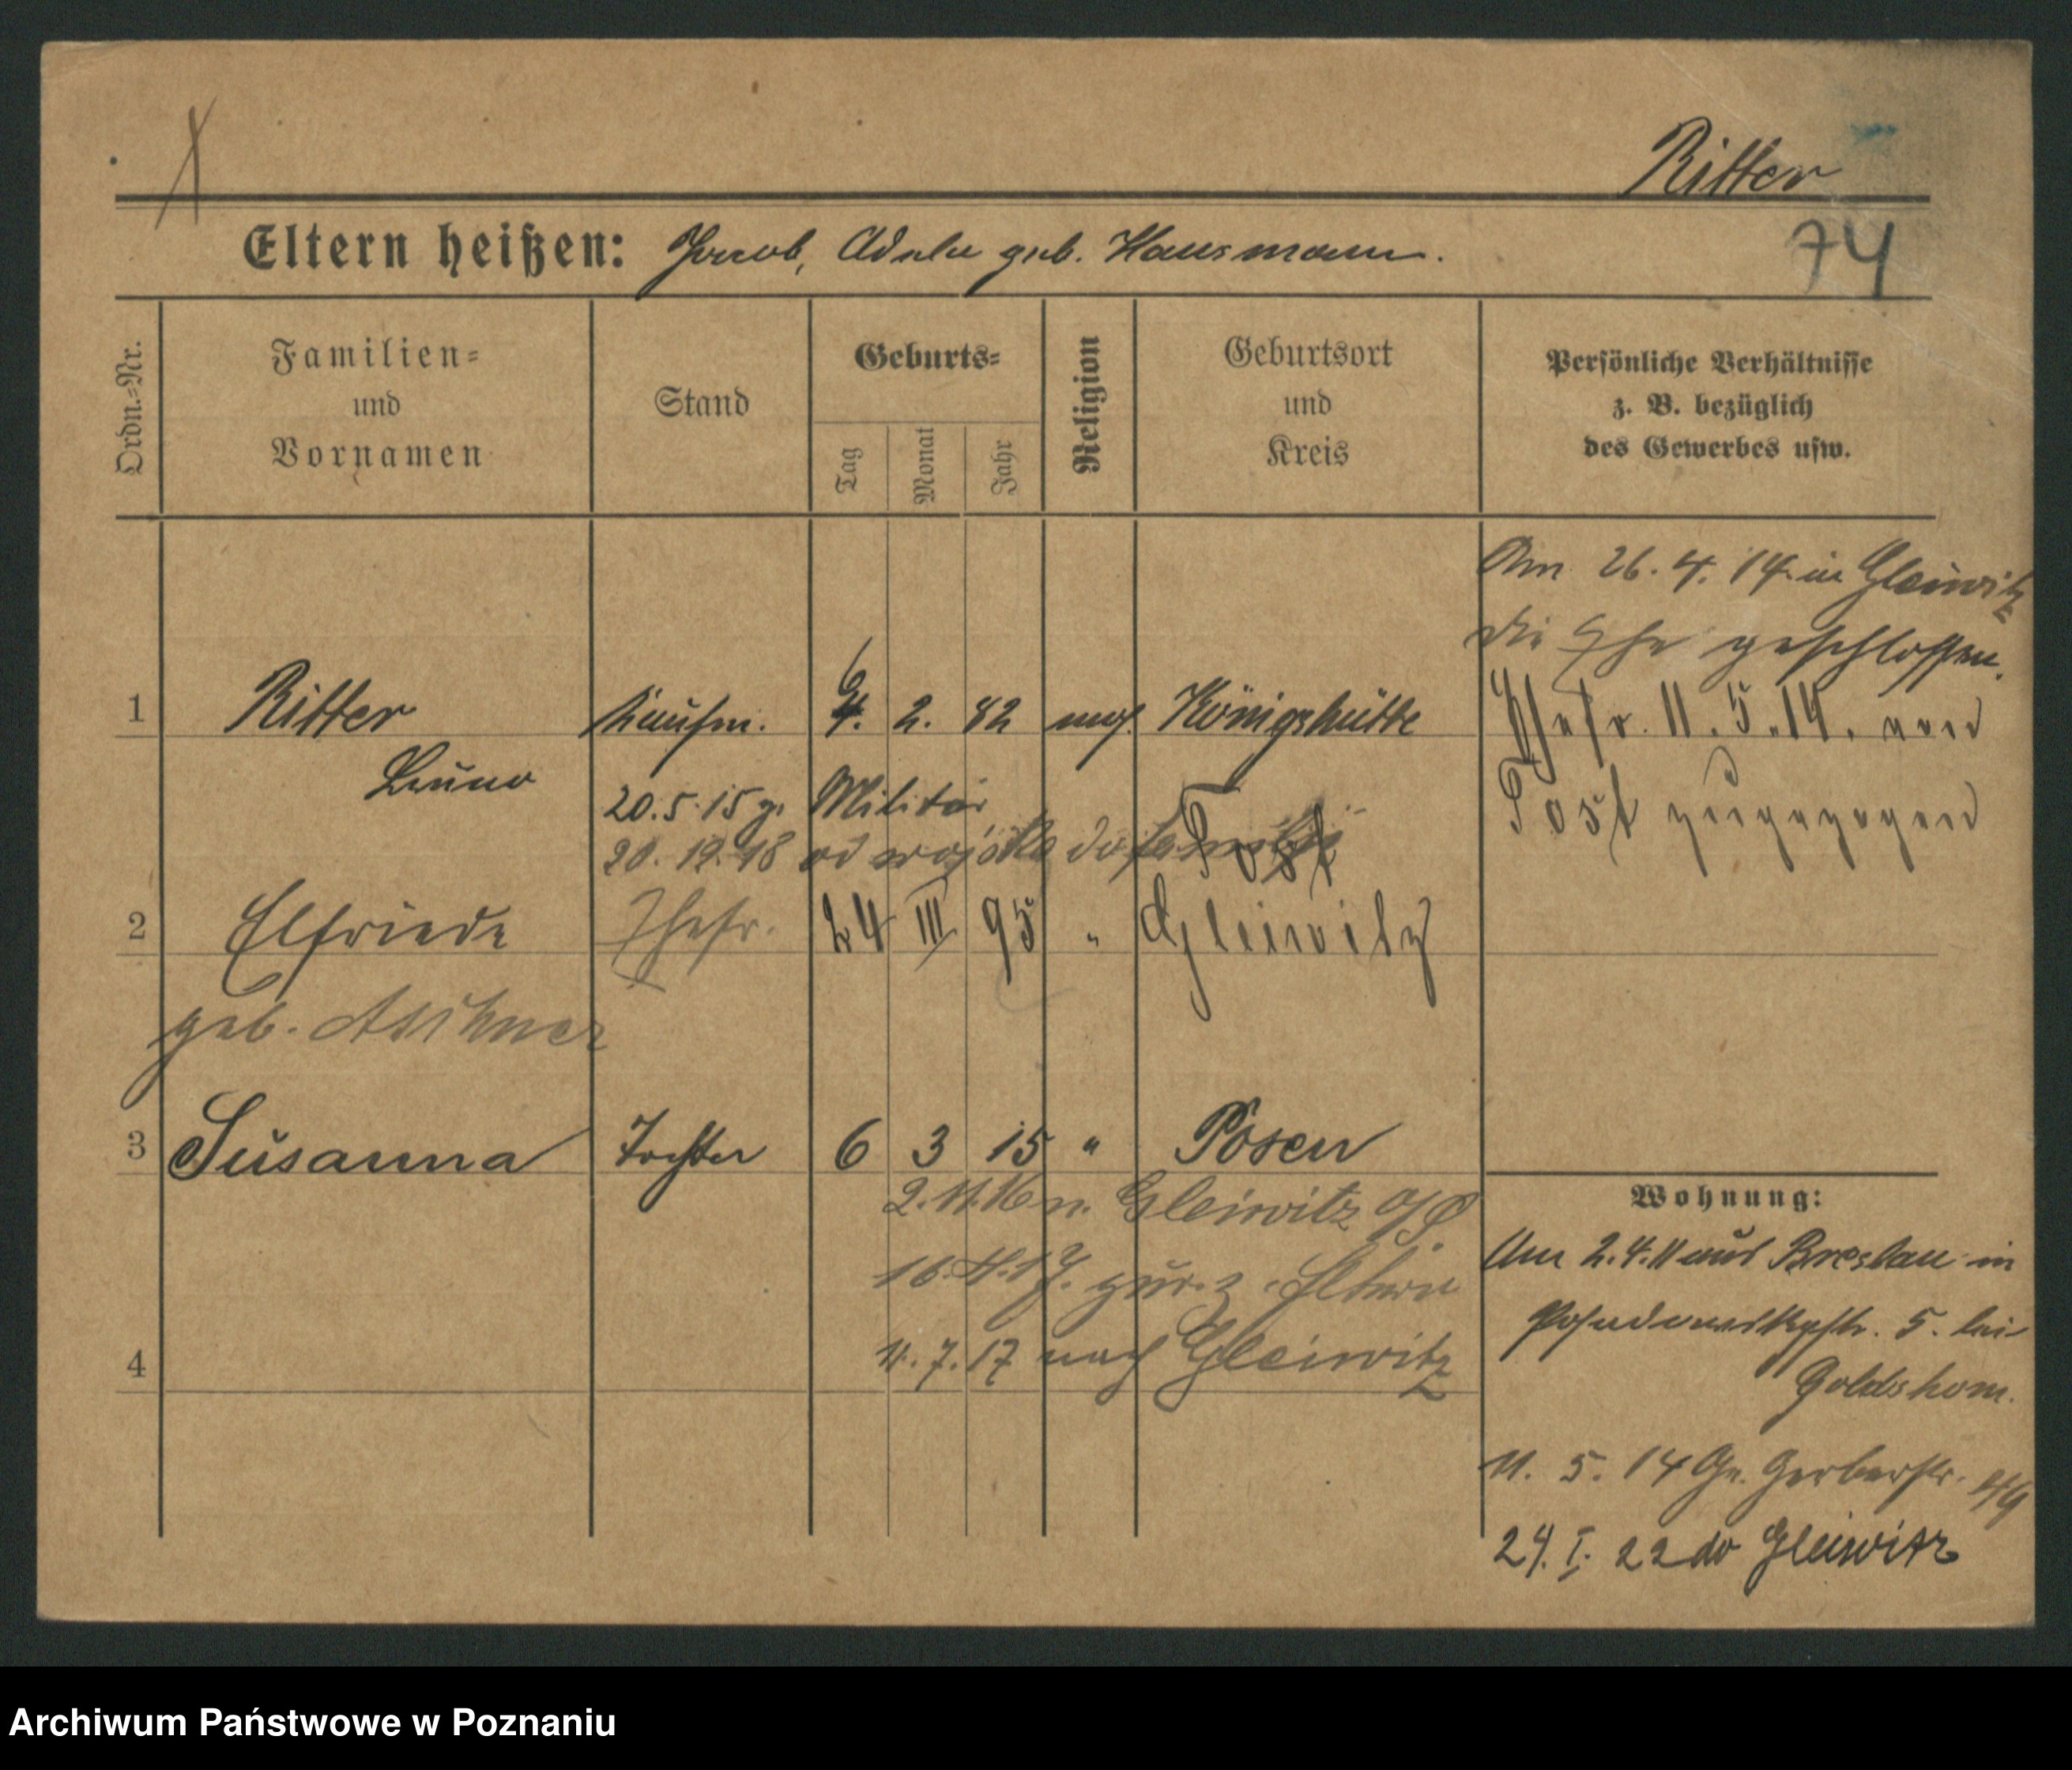 Ritter
74
Eltern heißen: Jacob, Adele geb. Hausmann.
Ordn.=Nr.
Familien=
und
Vornamen
Stand
Geburts=
Tag
Monat
Jahr
Religion
Geburtsort
und
Kreis
Persönliche Verhältnisse
z. B. bezüglich
des Gewerbes usw.
Am 26. 4. 14. in Gleiwitz
die Ehe geschlossen.
1 Ritter Kaufm. 6 4. 2. 82 mos. Königshütte
Ehefr. 11. 5. 14. von
Bruno
20. 5. 15 z. Militär
Tost zugezogen
20. 12. 18 od wojska do Tost
2 Elfriede Ehefr. 24 III 95 " Gleiwitz
geb.
3 Susanna Tochter 6 3 15 " Posen
2. 11. 16 n. Gleiwitz O/S.
16. 4. 17. zur. z. Eltern
4
11. 7. 17 nach Gleiwitz
Wohnung:
Am 2. 4. 11 aus Breslau in
5. bei
11. 5. 14 Gr. Gerberstr.
24. I. 22 do Gleiwitz
Archiwum Państwowe w Poznaniu